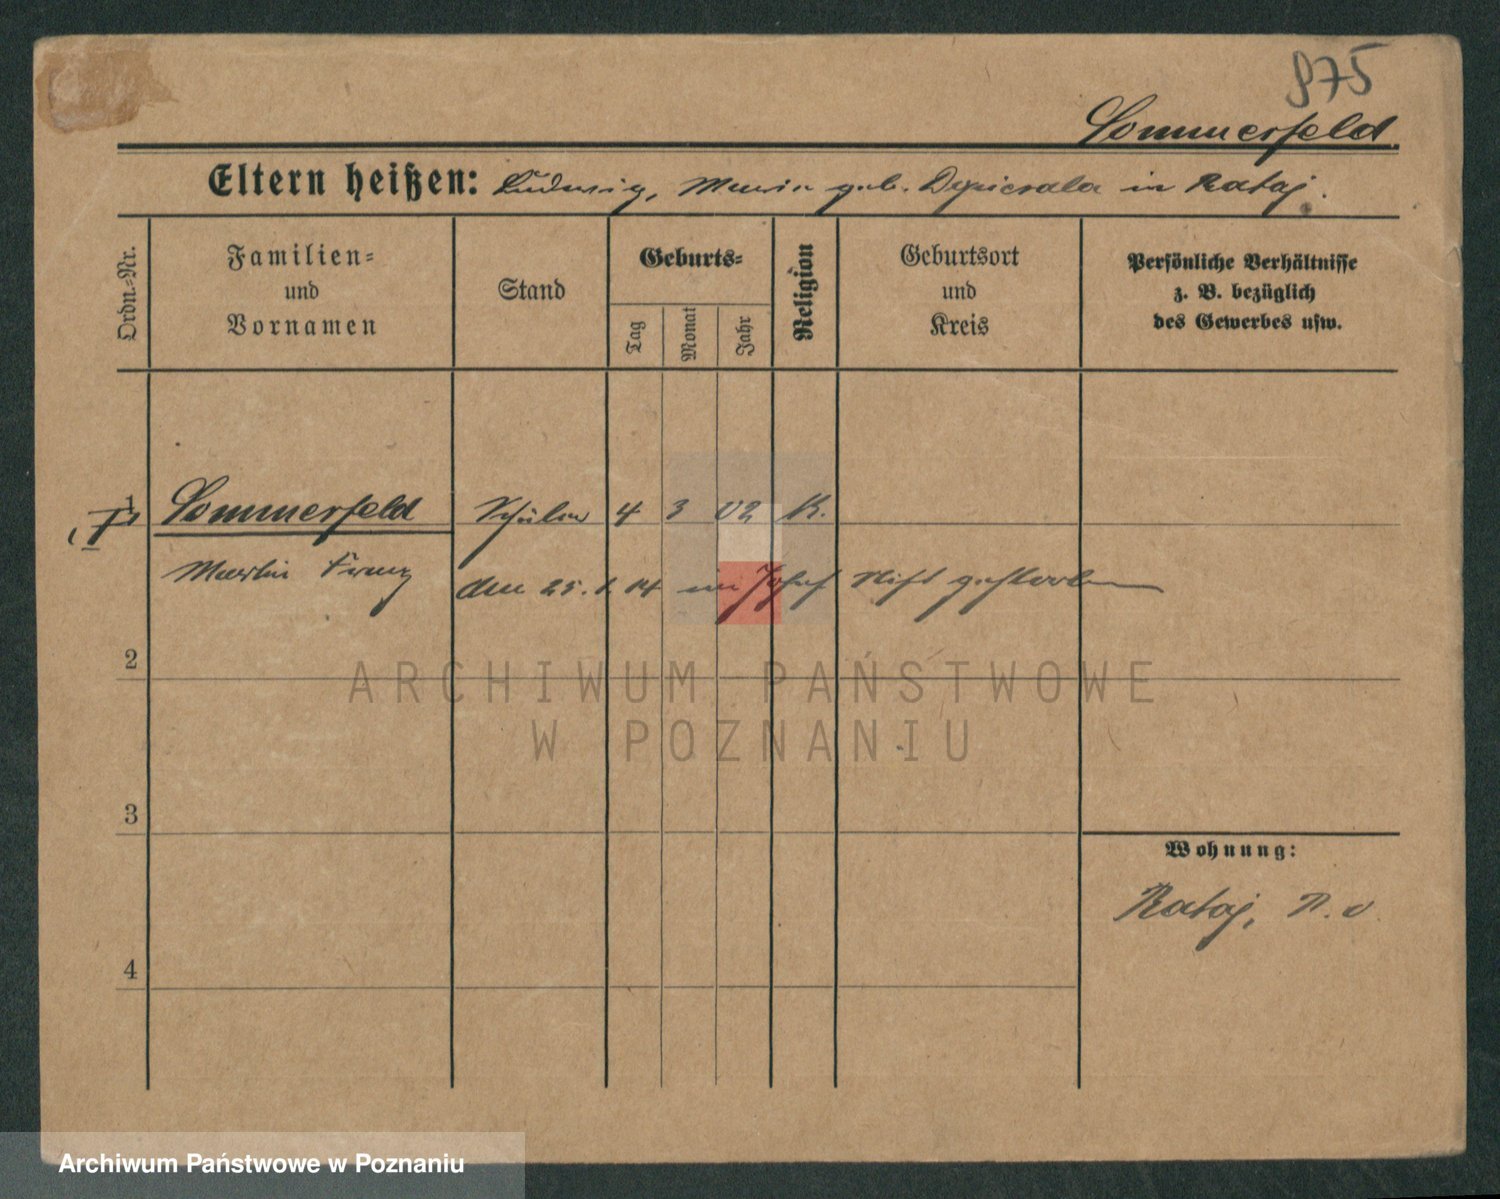 975
Sommerfeld
Eltern heißen: Ludwig, Maria geb. Depierala in Rataj.
Ordn.-Nr.
Familien-
und
Vornamen
Stand
Geburts-
Tag
Monat
Jahr
Religion
Geburtsort
und
Kreis
Persönliche Verhältnisse
z. B. bezüglich
des Gewerbes usw.
1 Sommerfeld Schüler 4 3 02 K.
Martin Franz den 25. 1. 14 im Josef Stift gestorben
2
3
4
Wohnung:
Rataj, P. O.
ARCHIWUM PAŃSTWOWE
W POZNANIU
Archiwum Państwowe w Poznaniu